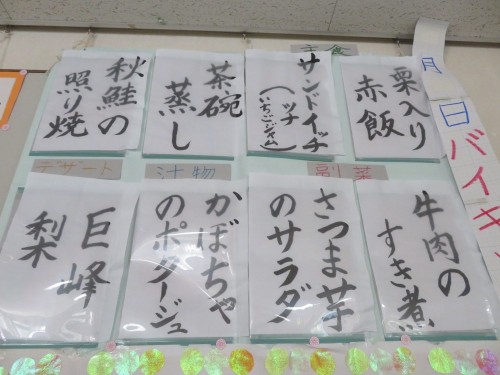 主食
栗入り
赤飯
サンドイッチ
(ツナ
いちごジャム)
茶碗
蒸し
秋鮭の
照り焼
副菜
牛肉の
すき煮
さつま芋
のサラダ
汁物
かぼちゃ
のポタージュ
デザート
巨峰
梨
月
日
バイキ